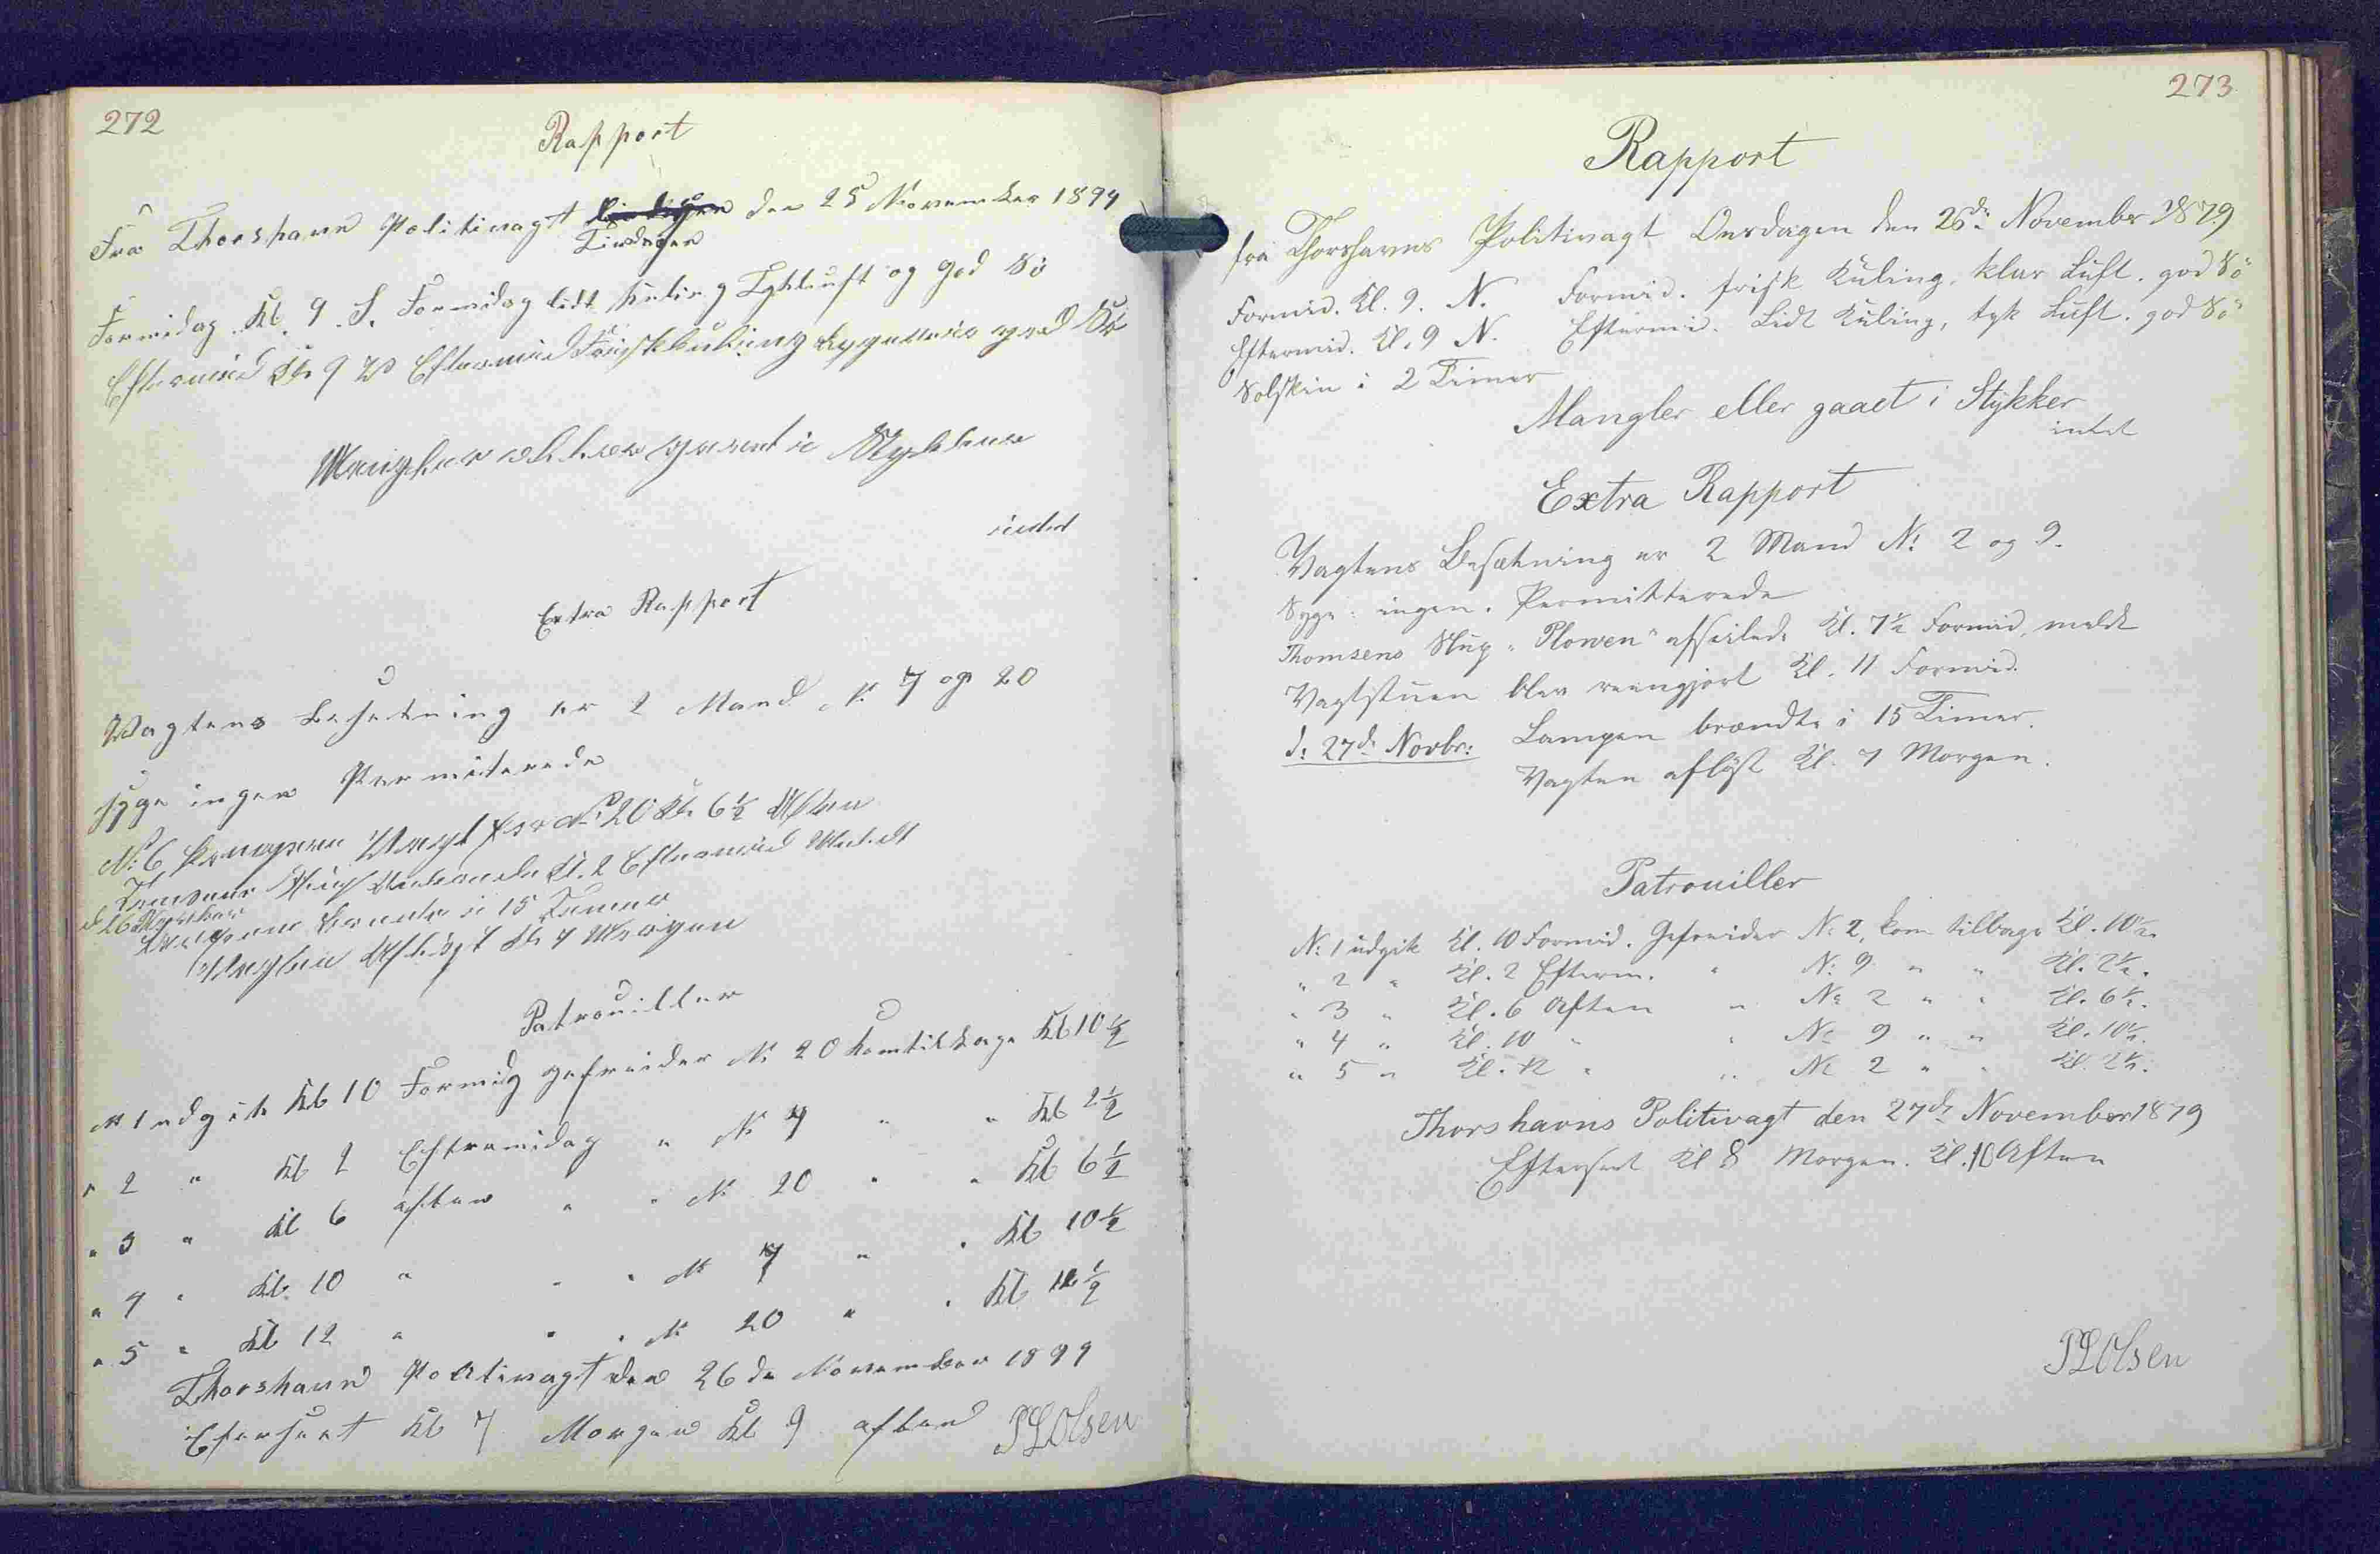 272
Rapport
Fra Thorshavns Politivagt den 25 November 1879
Tirsdagen
Formidag Kl. 9. S. Formidag lidt kuling Tykluft og god Sö
Eftermid Kl 9 Eftermid Frisk kuling god Sö
Mangler eller gaaet i Stykker
intet
Extra Rapport
Vagtens Besetning er 2 Mand N: 7 og 20
syge ingen Permiterede
N: 6 Vagt for N: 20 Kl. 6½ Aften
Kl. 2 Eftermid Meldt
d 26 November
brente i 15 Timer
Vagten Aflöst Kl 7 Morgen
Patrouiller
N 1 udgik Kl 10 Formidg gefreider N: 20 kom tilbage Kl 10½
" 2 " Kl 2 Eftermidag " N: 7 " " Kl 2½
" 3 " Kl 6 aften " " N: 20 " " Kl 6½
" 4 " Kl. 10 " " " N: 7 " " Kl 10½
" 5 " Kl 12 " " " N: 20 " " Kl 12½
Thorshavns Politivagt den 26 de November 1879
Eferseet Kl 7 Morgen Kl 9 aften PLOlsen
273
Rapport
fra Thorshavns Politivagt Onsdagen den 26de November 1879
Formid. Kl. 9. N. Formid. frisk Kuling, klar Luft. god Sö
Eftermid. Kl. 9 N. Eftermid. Lidt Kuling, tyk Luft. god Sö
Solskin i 2 Timer
Mangler eller gaaet i Stykker
intet
Extra Rapport
Vagtens Besætning er 2 Mand N: 2 og 9.
Syge: ingen. Permitterede
Thomsens Slup "Plowen" afseilede Kl. 7½ Formid, meldt
Vagtstuen blev reengjort Kl. 11 Formid.
d: 27de Novbr: Lampen brændte i 15 Timer.
Vagten aflöst Kl. 7 Morgen.
Patrouiller
N: 1 udgik Kl. 10 Formid. Gefreider N: 2, kom tilbage Kl. 10½.
" 2 " Kl. 2 Efterm. " N: 9 " " Kl. 2½.
" 3 " Kl. 6 Aften " N: 2 " " Kl. 6½.
" 4 " Kl. 10 " " N: 9 " " Kl. 10½.
" 5 " Kl. " " N: 2 " " Kl. 2½.
Thorshavns Politivagt den 27de November 1879
Efterseet Kl 8 Morgen. Kl. 10 Aften
PLOlsen